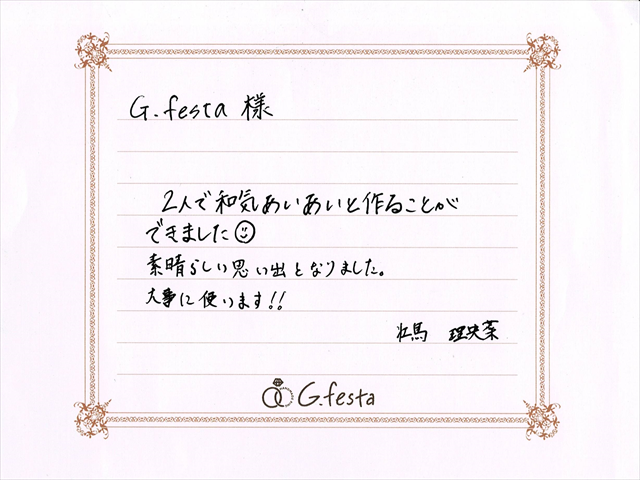 G.festa 様
2人で和気あいあいと作ることが
できました☺
素晴らしい思い出となりました。
大事に使います!!
壮馬 理央菜
G.festa